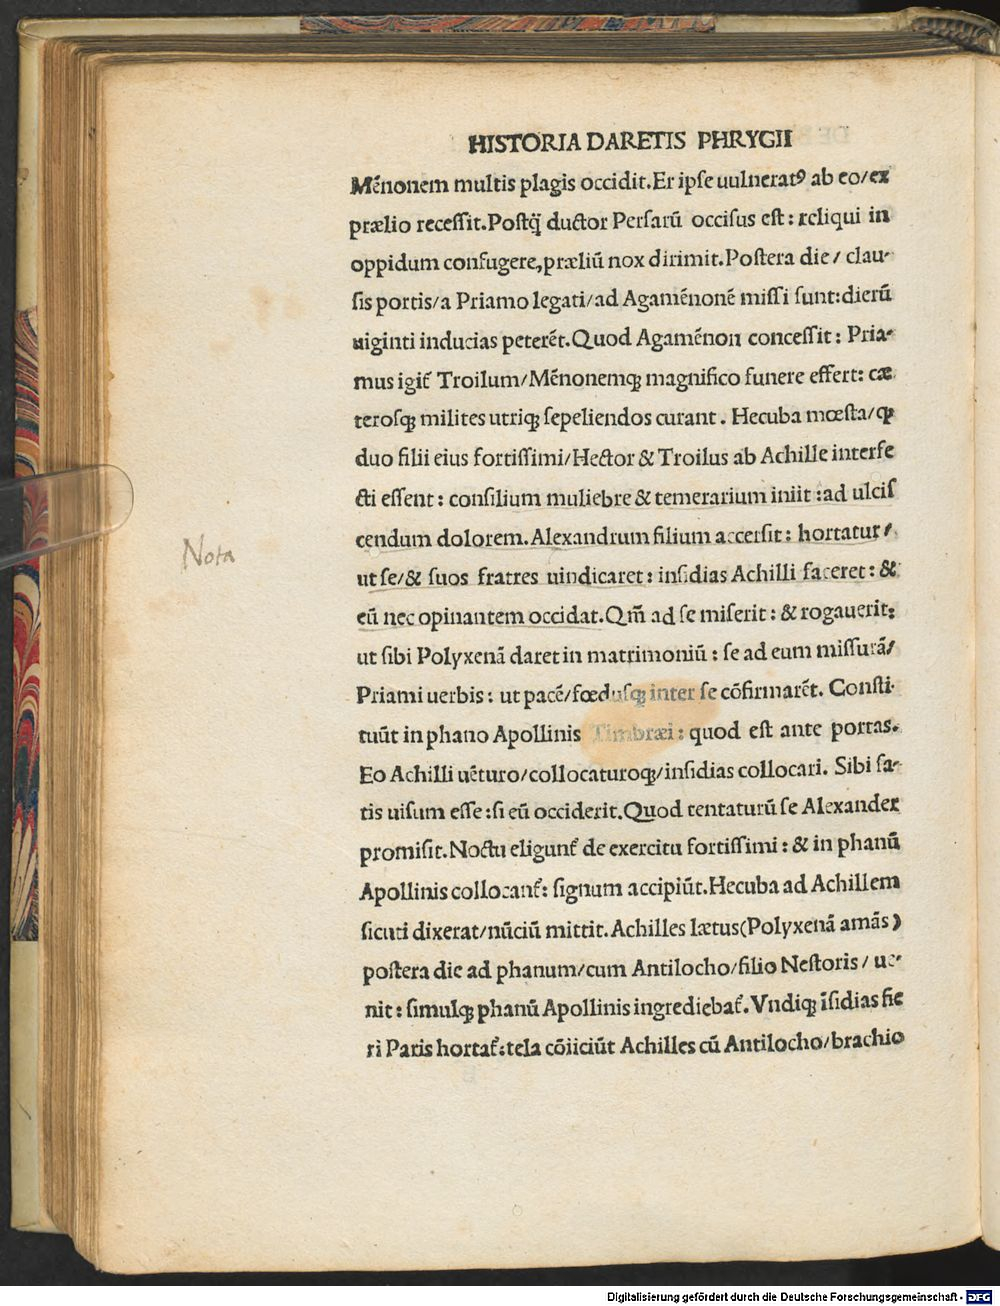 HISTORIA DARETIS PHRYGII
Mēnonem multis plagis occidit. Er ipſe uulneratꝰ ab eo/ex
prælio receſſit. Poſtq̄ ductor Perſarū occiſus eſt: reliqui in
oppidum confugere, præliū nox dirimit. Poſtera die/ clau-
ſis portis/a Priamo legati/ad Agamēnonē miſſi ſunt: dierū
uiginti inducias peterēt. Quod Agamēnon conceſſit: Pria-
mus igit᷑ Troilum/Mēnonemqꝫ magnifico funere effert: cæ
teroſqꝫ milites utriqꝫ ſepeliendos curant. Hecuba mœſta/ꝙ
duo filii eius fortiſſimi/Hector & Troilus ab Achille interfe
cti eſſent: conſilium muliebre & temerarium iniit: ad ulciſ
cendum dolorem. Alexandrum filium accerſit: hortatur/
Nota
ut ſe/& ſuos fratres uindicaret: inſidias Achilli faceret: &
eū nec opinantem occidat. Qm̄ ad ſe miſerit: & rogauerit:
ut ſibi Polyxenā daret in matrimoniū: ſe ad eum miſſurā/
Priami uerbis: ut pacē/fœduſqꝫ inter ſe cōfirmarēt. Conſti-
tuūt in phano Apollinis Timbræi: quod eſt ante portas.
Eo Achilli uēturo/collocaturoqꝫ/inſidias collocari. Sibi ſa-
tis uiſum eſſe: ſi eū occiderit. Quod tentaturū ſe Alexander
promiſit. Noctu eligunt᷑ de exercitu fortiſſimi: & in phanū
Apollinis collocant᷑: ſignum accipiūt. Hecuba ad Achillem
ſicuti dixerat/nūciū mittit. Achilles lætus(Polyxenā amās)
poſtera die ad phanum/cum Antilocho/filio Neſtoris/ ue-
nit: ſimulqꝫ phanū Apollinis ingrediebat᷑. Vndiqꝫ īſidias fie
ri Paris hortat᷑: tela cōiiciūt Achilles cū Antilocho/brachio
Digitalisierung gefördert durch die Deutsche Forschungsgemeinschaft - DFG